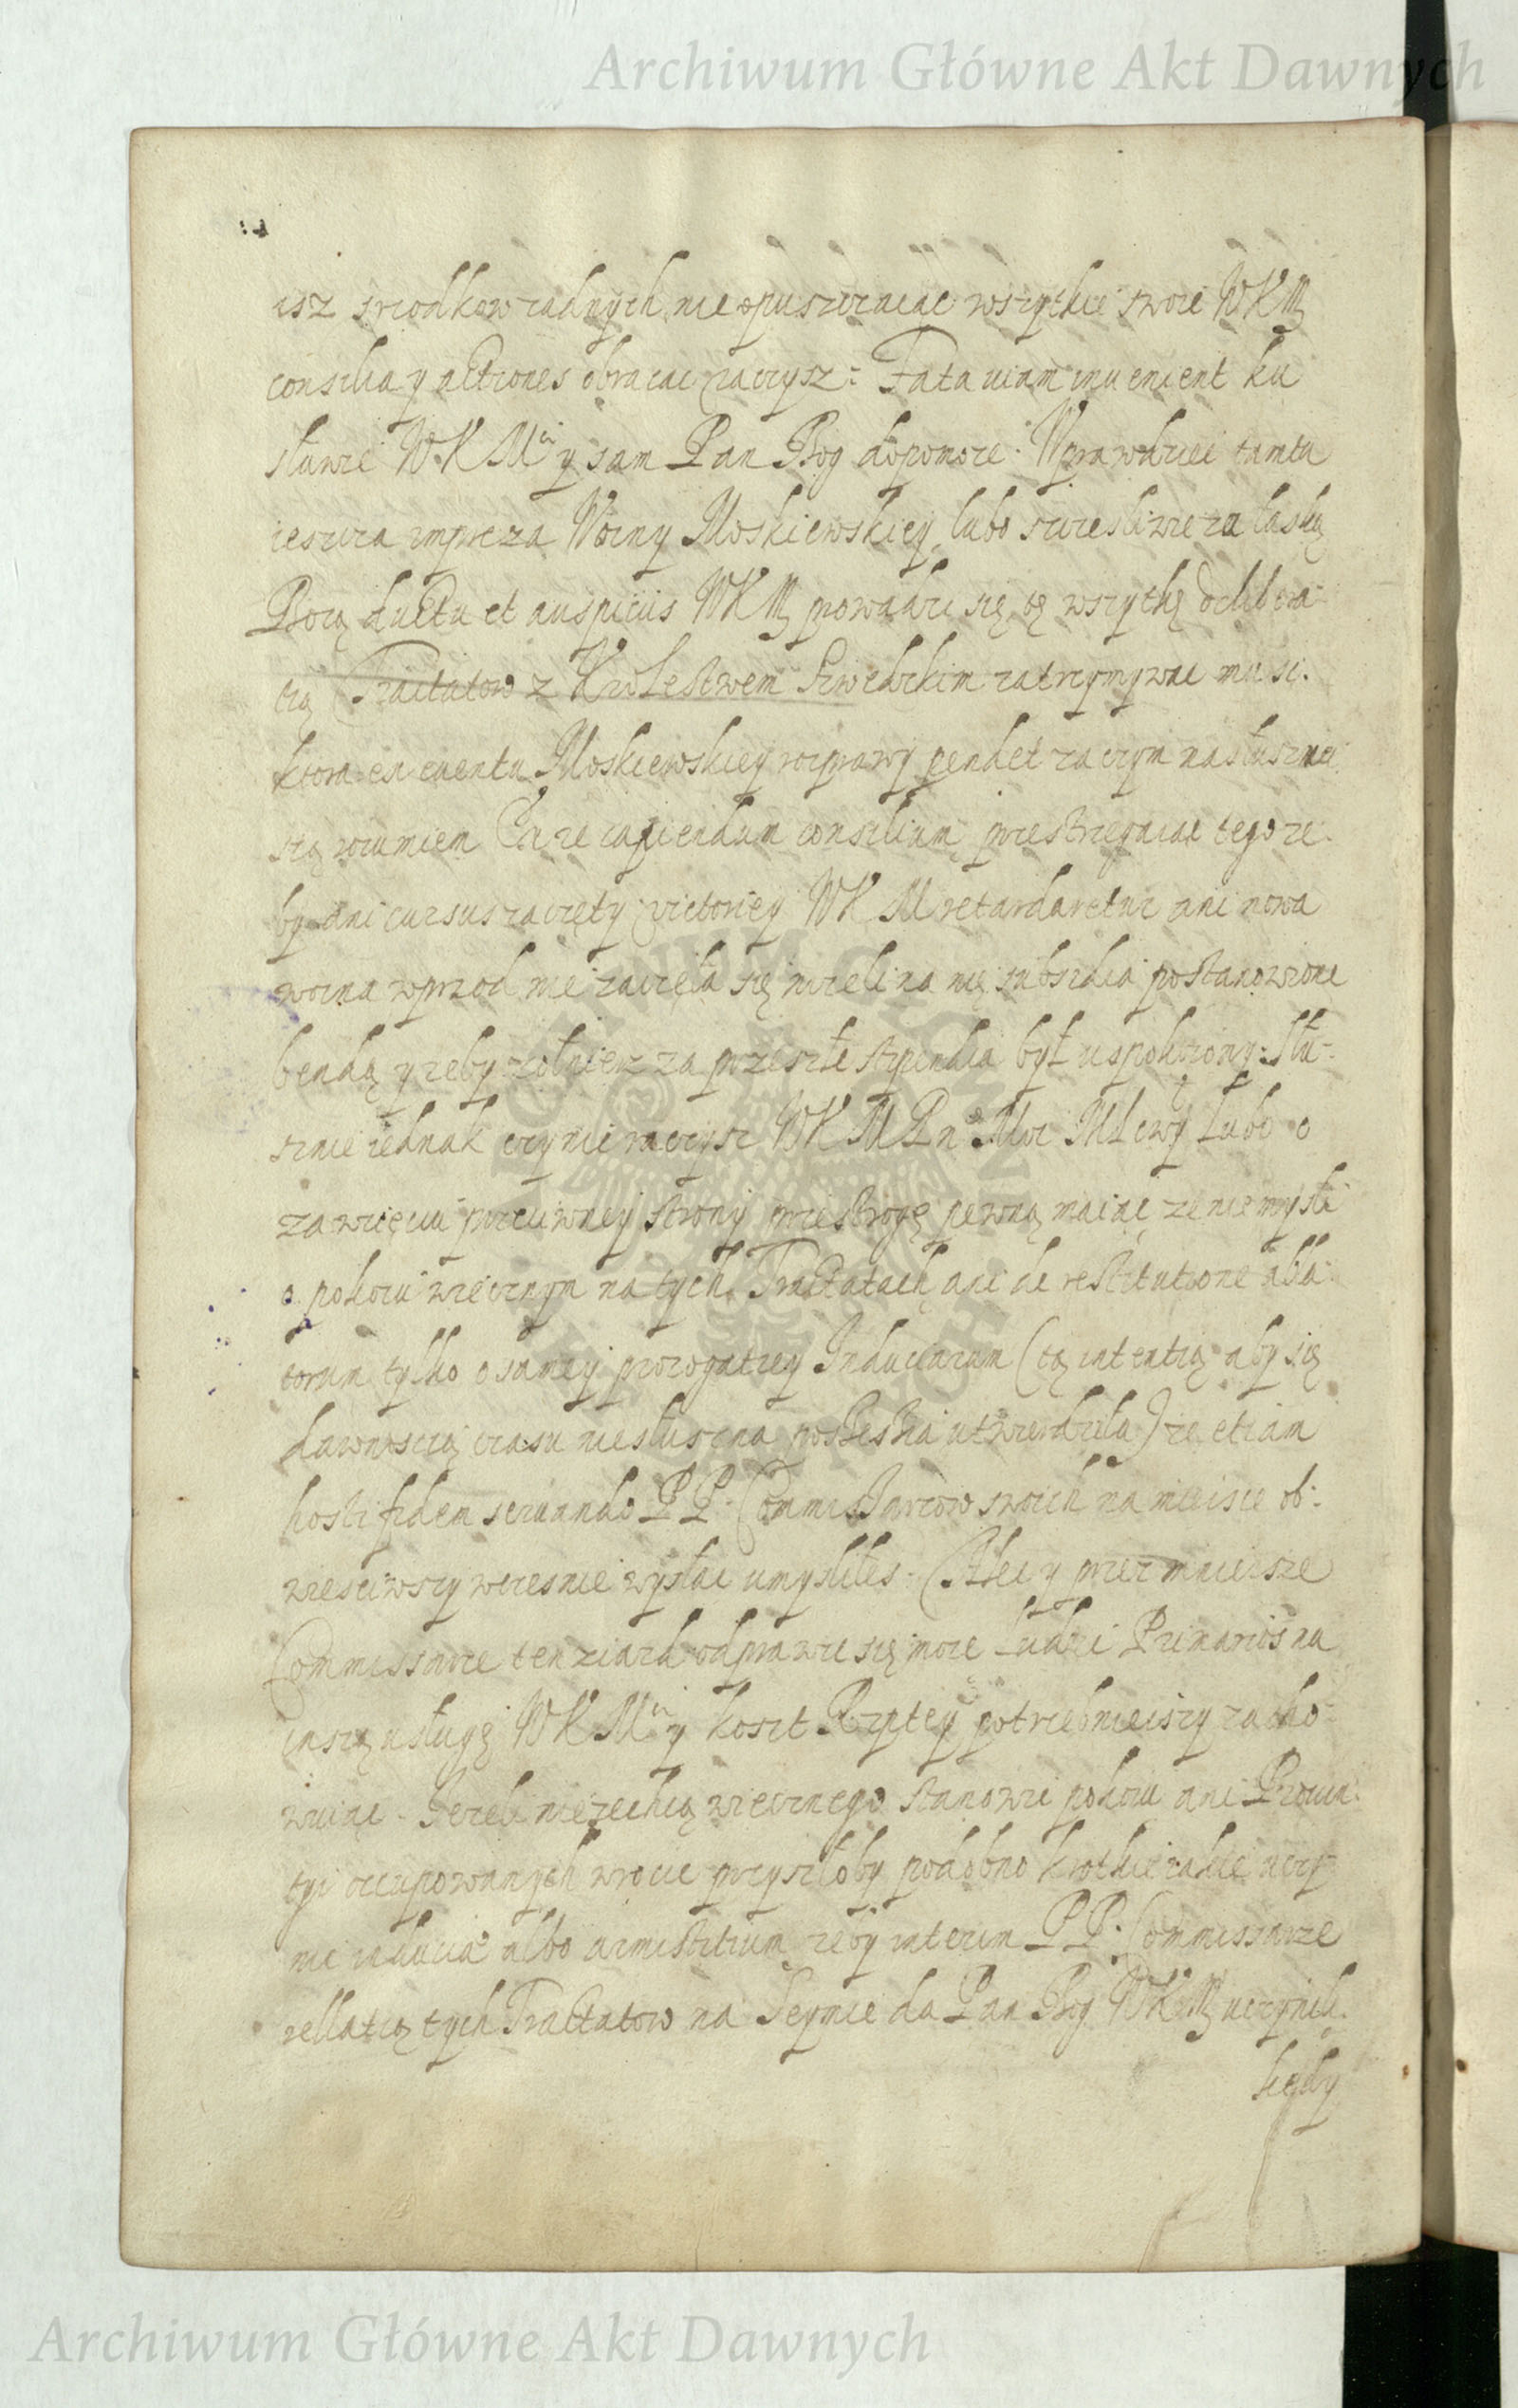 Archiwum Główne Akt Dawnych
isz srzodkow zadnych nie opuszczaiac wszytkie swoie WKM
consilia y actiones obracac raczysz: Fata viam invenient ku
sławie WKMci y sam Pan Bog dopomoze. Wprawdziei tamta
ieszcza impreza Woiny Moskiewskiey, lubo szczesliwie za łaską
Bozą ductu et auspiciis WKM prowadzi się tę wszytkę delibera
cią Tractatow z Krolestwem Szwedzkim zatrzymywac musi.
ktora ex euentu Moskiewskiey rozprawy pendet zaczym nasłuszniei
się rozumiem Ex re capiendum consilium, przestrzegaiac tego ze
by ani cursus zaczęty victoriey WKM retardaretur ani nowa
woina wprzod nie zaczęła się nizeli na nię subsidia postanowione
bendą y zeby zołnierz za przeszłe stipendia był uspokoiony. Słu-
sznie iednak czynic raczysz WKM Pn Moi Młwy lubo o
zawzięciu przeciwney strony przestrogę pewną maiąc ze nie mysli
o pokoiu wiecznym na tych Tractatach ani de restitutione abla-
torum tylko o samey prorogatiey Induciarum (tą intentią aby się
dawnoscią czasu niesłuszna possessia utwierdziła) ze etiam
hosti fidem seruando PP. Commissarzow swoich na mieisce ob-
wiesciwszy wczesnie wysłac umysliłes. Aleć y przez mnieisze
Commissarze ten ziazd odprawic się moze ludzi Primarios na
inszą usługę WKMci y koszt Rzptey potrzebnieiszy zacho-
wuiąc. Iezeli nie zechcą wiecznego stanowic pokoiu ani Prowin-
tyi occupowanych wrocic przyszłoby podobno krotkie iakie uczy-
nic inducia albo armistitium zeby interim PP. Commissarze
rellatią tych Tractatow na Seymie da Pan Bog WKM uczynili.
kędy
Archiwum Główne Akt Dawnych